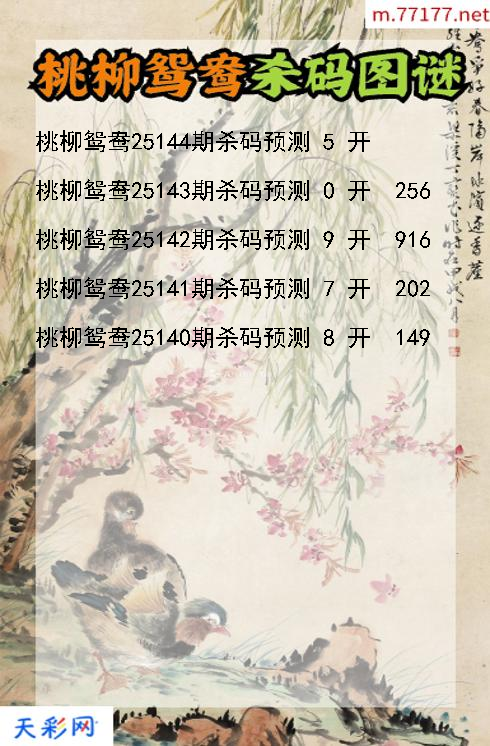 m.77177.net
桃柳鸳鸯杀码图谜
桃柳鸳鸯25144期杀码预测 5 开
桃柳鸳鸯25143期杀码预测 0 开 256
桃柳鸳鸯25142期杀码预测 9 开 916
桃柳鸳鸯25141期杀码预测 7 开 202
桃柳鸳鸯25140期杀码预测 8 开 149
天彩网